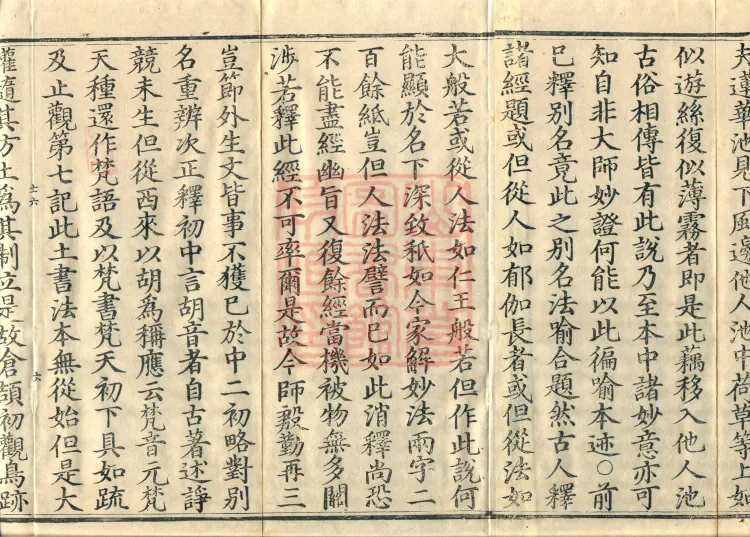 夫蓮華池見下風邊他人池中荷草等上如
似遊絲復似薄霧者即是此藕移入他人池
古俗相傳皆有此說乃至本中諸妙意亦可
知自非大師妙證何能以此徧喻本迹○前
巳釋別名竟此之別名法喻合題然古人釋
諸經題或但從人如郁伽長者或但從法如
大般若或從人法如仁王般若但作此說何
能顯於名下深致秖如今家解妙法兩字二
百餘紙豈但人法法譬而巳如此消釋尚恐
不能盡經幽旨又復餘經當機被物無多關
涉若釋此經不可率爾是故今師殷勤再三
豈節外生文皆事不獲巳於中二初略對別
名重辨次正釋初中言胡音者自古著述諍
競未生但從西來以胡爲稱應云梵音元梵
天種還作梵語及以梵書梵天初下具如䟽
及止觀第七記此土書法本無從始但是大
士六
六
權隨其方土爲其制立是故倉頡初觀鳥跡